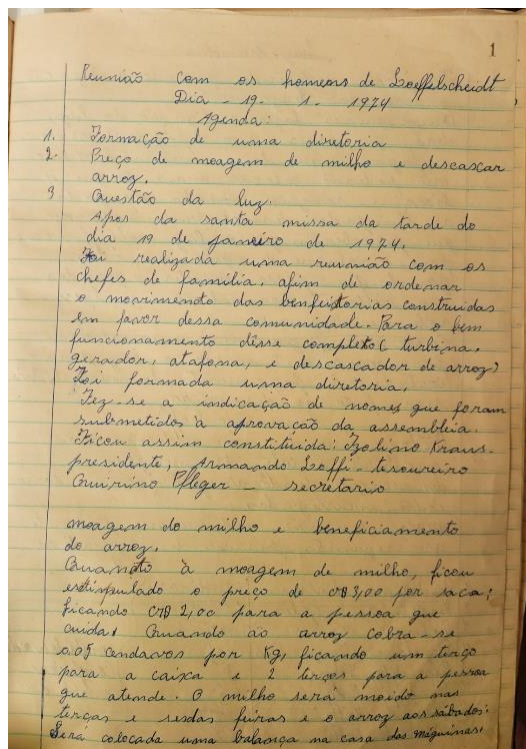 1
Reunião com os homens de Loeffelscheidt
Dia - 19. 1. 1974
Agenda:
1. Formação de uma diretoria
2. Preço de moagem de milho e descascar
arroz.
3 Questão da luz.
Apos da santa missa da tarde do
dia 19 de janeiro de 1974.
Foi realizada uma reunião com os
chefes de familia. afim de ordenar
o movimendo das benfeitorias construidas
em favor dessa comunidade. Para o bem
funcionamento dêsse completo ( turbina.
gerador, atafona, e descascador de arroz)
Foi formada uma diretoria.
Fez-se a indicação de nomes que foram
submetidos à aprovação da assembleia.
Ficou assim constituida: Izolino Kraus.
presidente, Armando Loffi - tesoureiro
Quirino Pfleger - secretario
moagem do milho e beneficiamento
do arroz.
Quando à moagem de milho, ficou
estinpulado o preço de cr$ 3,00 por saca;
ficando cr$ 2,00 para a pessoa que
cuida. Quando ao arroz cobra-se
0.05 cendavos por Kg, ficando um terço
para a caixa e 2 terços para a pessoa
que atende. O milho será moido nas
terças e sesdas feiras e o arroz aos sábados.
Será colocada uma balança na casa das máquinas.